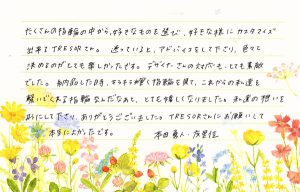 たくさんの指輪の中から、好きなものを選び、好きな様にカスタマイズ
出来るTRESORさん。迷っていると、アドバイスをして下さり、色々と
決めるのがとても楽しかったです。デザイナーさんの対応も、とても素敵
でした。納品した時、キラキラ輝く指輪を見て、これからの私達を
繋いでくれる指輪なんだなぁと、とても嬉しくなりました。私達の想いを
形にして下さり、ありがとうございました。TRESORさんにお願いして
本当によかったです。 本田